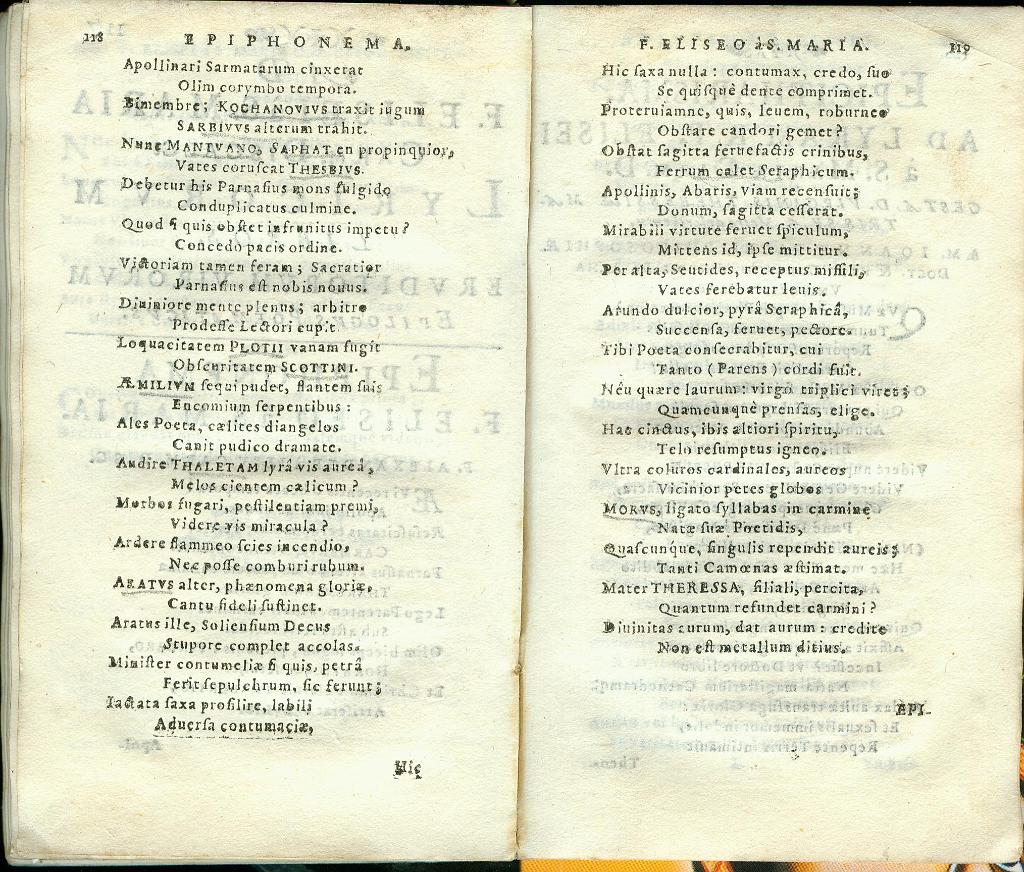 118 EPIPHONEMA.
Apollinari Sarmatarum cinxerat
Olim corymbo tempora.
Bimembre; KOCHANOVIVS traxit iugum
SARBIVVS alterum trahit.
Nunc MANTVANO, SAPHAT en propinquior,
Vates coruscat THESBIVS.
Debetur his Parnasius mons fulgido
Conduplicatus culmine.
Quod si quis obstet infrunitus impetu?
Concedo pacis ordine.
Victoriam tamen feram; Sacratior
Parnasius est nobis nouus.
Diuiniore mente plenus; arbitro
Prodesse Lectori cupit.
Loquacitatem PLOTII vanam fugit
Obscuritatem SCOTTINI.
ÆMILIVM sequi pudet, flantem suis
Encomium serpentibus:
Ales Poeta, cælites diangelos
Canit pudico dramate.
Audire THALETAM lyrâ vis aureâ,
Melos cientem cælicum?
Morbos fugari, pestilentiam premi,
Videre vis miracula?
Ardere flammeo scies incendio,
Nec posse comburi rubum.
ARATVS alter, phænomena gloriæ,
Cantu fideli sustinet.
Aratus ille, Soliensium Decus
Stupore complet accolas.
Minister contumeliæ si quis, petrâ
Ferit sepulchrum, sic ferunt;
Iactata saxa prosilire, labili
Aduersa contumaciæ,
Hic
F. ELISEO àS. MARIA. 119
Hic saxa nulla: contumax, credo, suo
Se quisquè dente comprimet.
Proteruiamne, quis, leuem, roburne
Obstare candori gemet?
Obstat sagitta feruefactis crinibus,
Ferrum calet Seraphicum.
Apollinis, Abaris, viam recensuit;
Donum, sagitta cesserat.
Mirabili virtute feruet spiculum,
Mittens id, ipse mittitur.
Per alta, Seutides, receptus missili,
Vates ferebatur leuis.
Arundo dulcior, pyrâ Seraphicâ,
Succensa, feruet, pectore.
Tibi Poeta consecrabitur, cui
Tanto (Parens) cordi fuit.
Neu quære laurum: virga triplici viret;
Quamcunquè prensas, elige.
Hac cinctus, ibis altiori spiritu,
Telo resumptus igneo.
Vltra coluros cardinales, aureos
Vicinior petes globos
MORVS, ligato syllabas in carmine
Natæ suæ Poetidis,
Quascunque, singulis rependit aureis;
Tanti Camœnas æstimat.
Mater THERESSA, filiali, percita,
Quantum refundet carmini?
Diuinitas aurum, dat aurum: credite
Non est metallum ditius.
EPI-